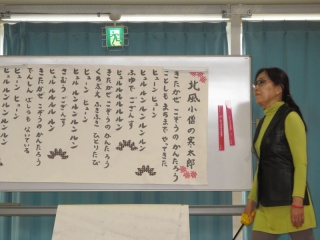 北風小僧の寒太郎
きたかぜ こぞうの かんたろう
ことしも まちまで やってきた
ヒューン ヒューン
ヒュルルンルンルンルン
ふゆで ござんす
ヒュルルルルルルン
きたかぜ こぞうの かんたろう
くちぶえ ふきふき ひとりたび
ヒューン ヒューン
ヒュルルンルンルンルン
さむう ござんす
ヒュルルルルルルン
きたかぜ こぞうの かんたろう
でんしんばしらも ないている
ヒューン ヒューン
ヒュルルンルンルンルン